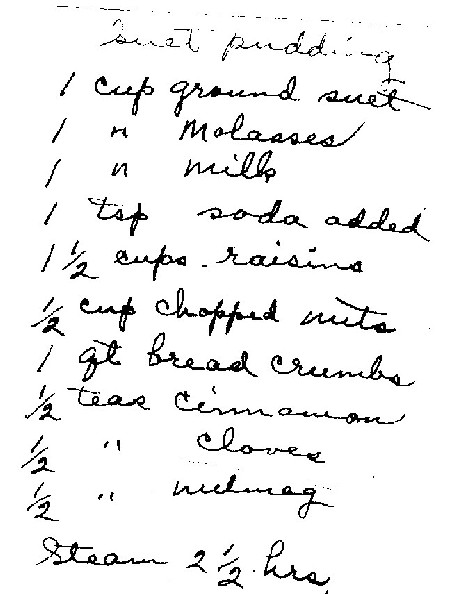 Suet pudding
1 cup ground suet
1 " Molasses
1 " milk
1 tsp soda added
1 1/2 cups raisins
1/2 cup chopped nuts
1 qt bread crumbs
1/2 teas cinnamon
1/2 " cloves
1/2 " nutmeg
Steam 2 1/2 hrs.